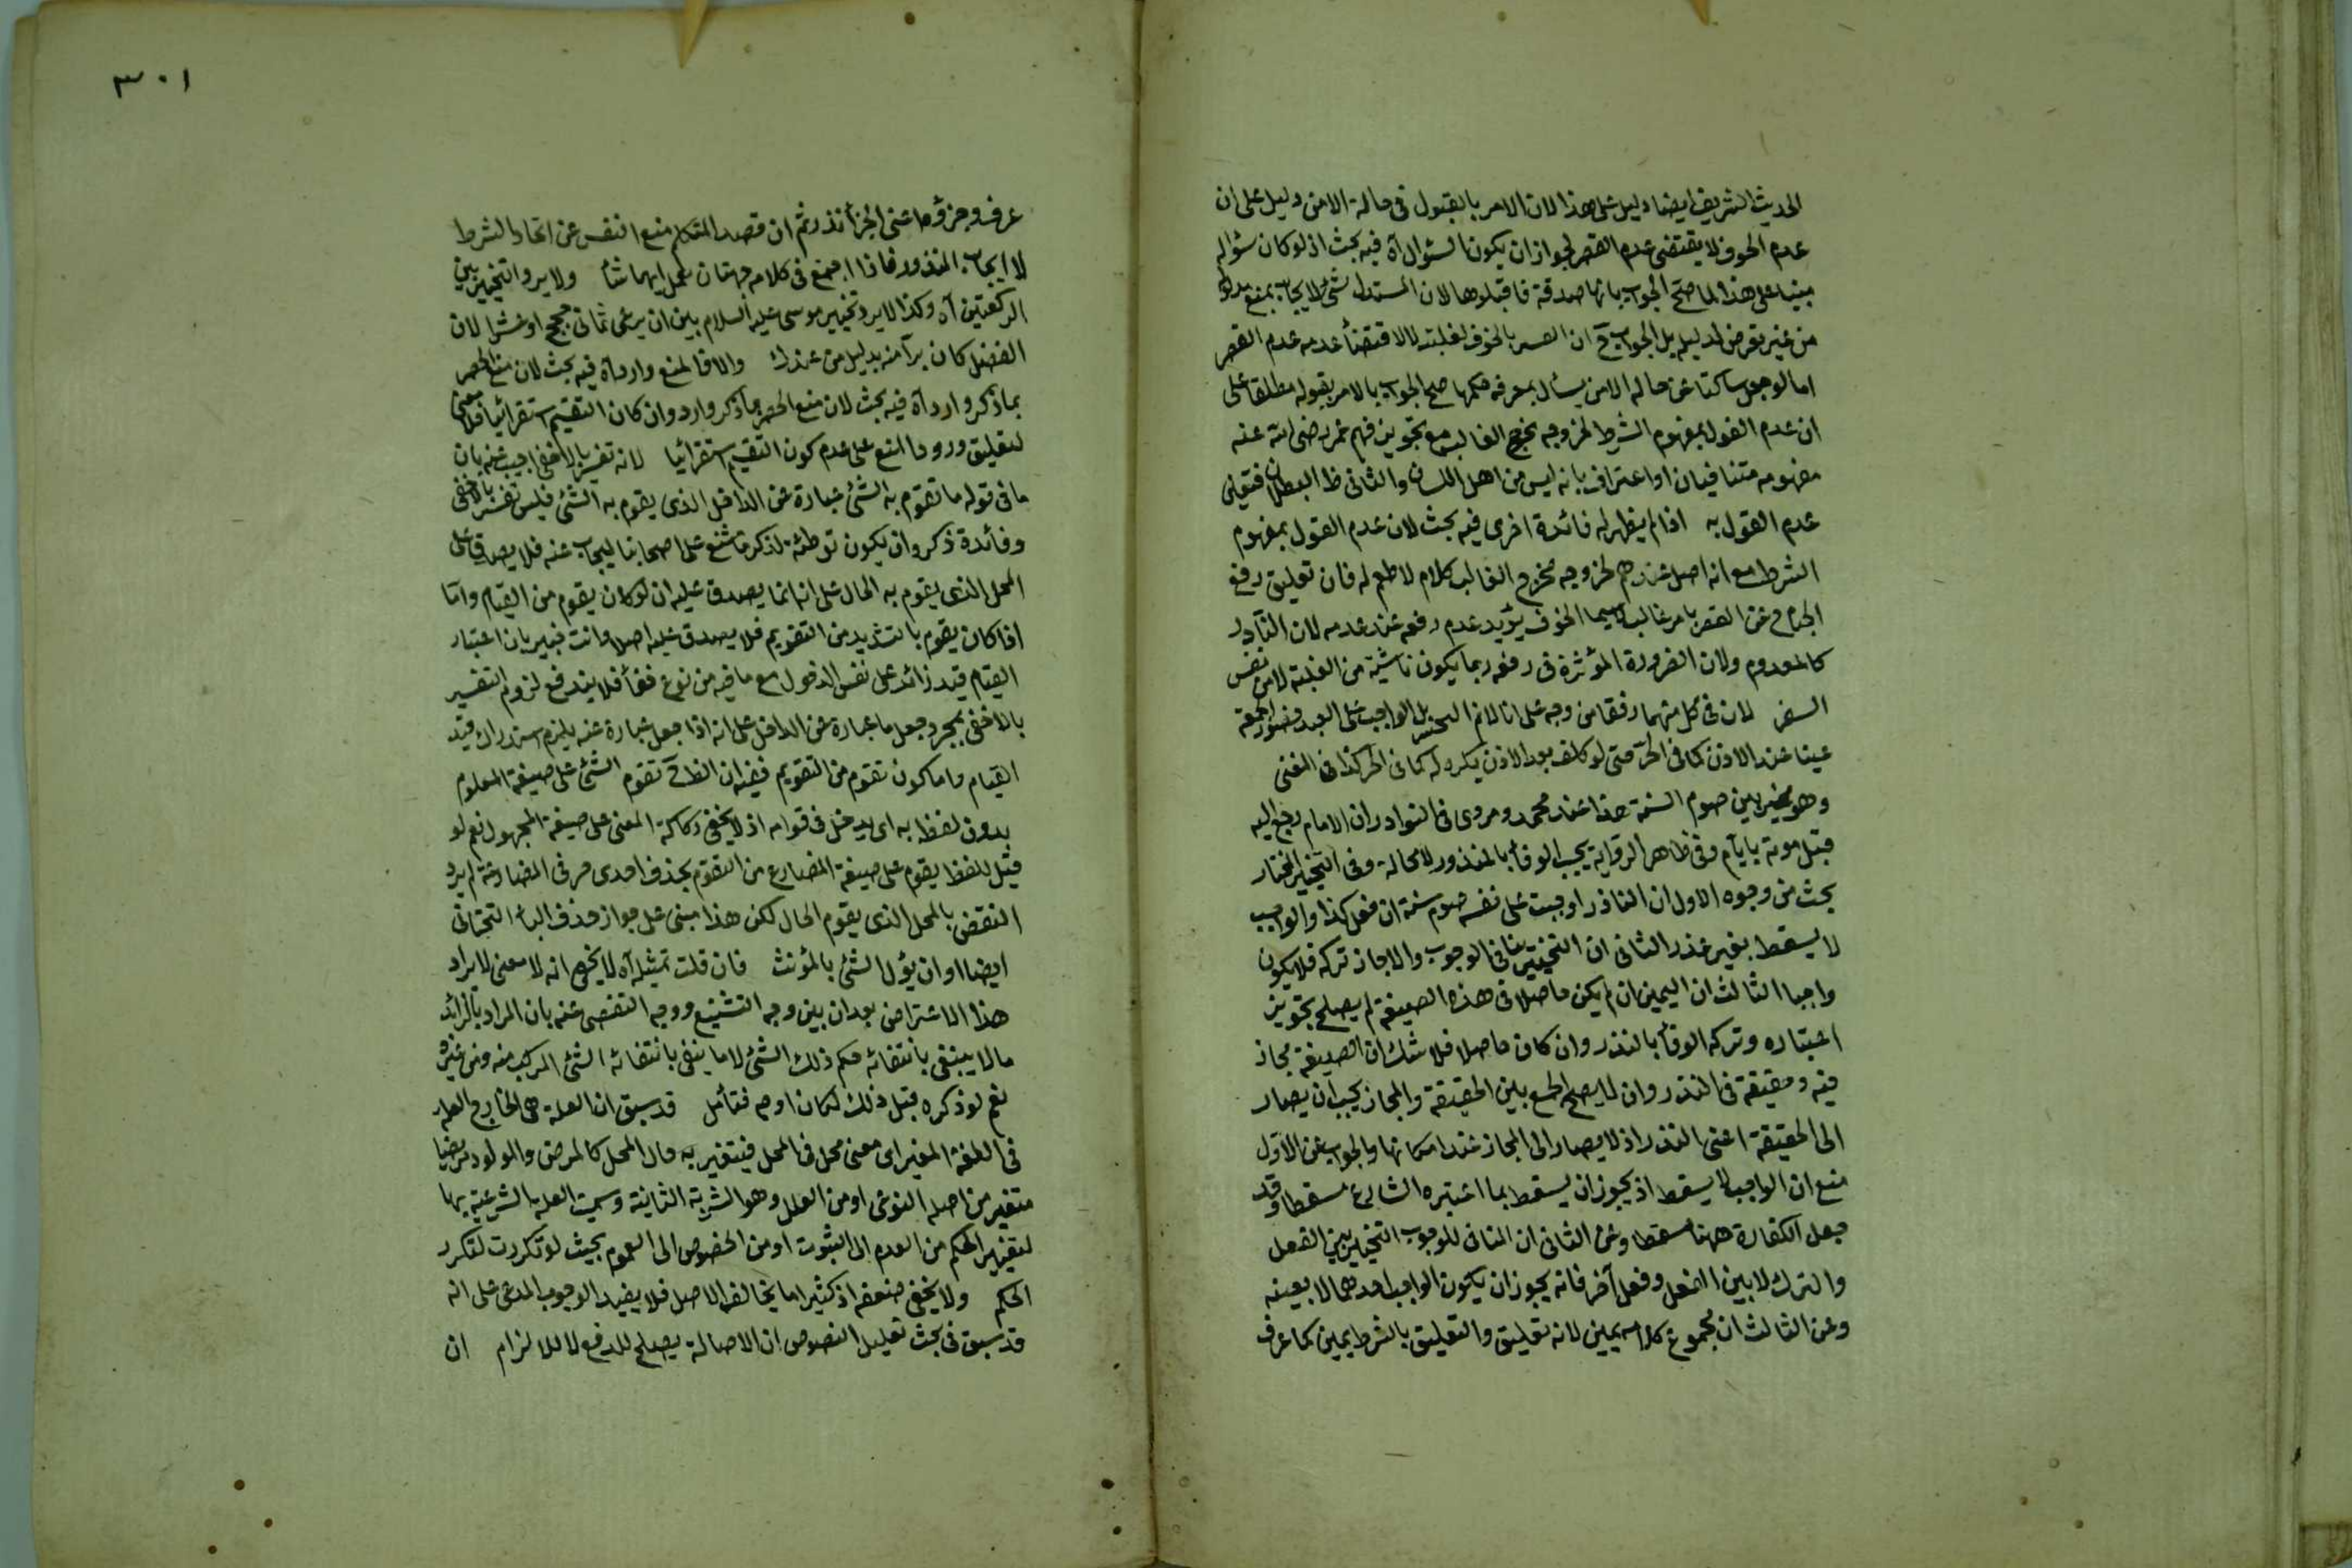 الحديث الشريف ايضا دليل على هذا لان الامر بالقبول فى حالة الامن دليل على ان
عدم الخوف لا يقتضى عدم القصر لجواز ان يكون السؤال آه فيه بحث اذ لو كان سؤاله
مبنيا على هذا لما صح الجواب بانها صدقة فاقبلوها لان المستدل بشئ لا يجاب بمنع مدلوله
من غير تعرض لدليله بل الجواب ح ان القصر بالخوف لغلبته لا لاقتضاء عدمه عدم القصر
اما لو جعل ساكتا عن حالة الامن يسأل بمعرفة حكمها صح الجواب بالامر بقبوله مطلقا على
ان عدم القول بمفهوم الشرط لخروجه مخرج الغالب مع تجويز فهم عمر رضى الله عنه
مفهومه متنافيان او اعتراف بانه ليس من اهل اللسان والثانى ظ البطلان فتعين
عدم القول به اذا لم يظهر له فائدة اخرى فيه بحث لان عدم القول بمفهوم
الشرط مع انه اصل عندهم لخروجه مخرج الغالب كلام لا طعم له فان تعليق رفع
الجناح عن القصر بامر غالب لا سيما الخوف يؤيد عدم رفعه عند عدمه لان النادر
كالمعدوم ولان الضرورة المؤثرة فى رفعه ربما يكون ناشية من الغلبة لا من نفس
السفر لان فى كل منهما رفقا من وجه على انا لا نم التخيير بل الواجب على العبد حضور الجمعة
عينا عند الاذن كما فى الحر حتى لو تخلف بعد الاذن يكره له كما فى الحر كذا فى المغنى
وهو مخير بين صوم السنة هذا عند محمد ومروى فى النوادر ان الامام رجع اليه
قبل موته بايام وفى ظاهر الرواية يجب الوفاء بالمنذور لا محالة وفى التخيير المختار
بحث من وجوه الاول ان الناذر اوجبت على نفسه صوم سنة ان فعل كذا والواجب
لا يسقط بغير عذر الثانى ان التخيير ينافى الوجوب والا جاز تركه فلا يكون
واجبا الثالث ان اليمين ان لم يكن حاصلا فى هذه الصيغة لم يصلح تجويز
اختياره وتركه الوفاء بالنذر وان كان حاصلا فلا شك ان الصيغة مجاز
فيه وحقيقة فى النذر وان لم يصح الجمع بين الحقيقة والمجاز يجب ان يصار
الى الحقيقة اعنى النذر اذ لا يصار الى المجاز عند امكانها والجواب عن الاول
منع ان الواجب لا يسقط اذ يجوز ان يسقط بما اعتبره الشارع مسقطا وقد
جعل الكفارة ههنا مسقطا وعن الثانى ان المنافى للوجوب التخيير بين الفعل
والترك لا بين الفعل وفعل آخر فانه يجوز ان يكون الواجب احدهما لا بعينه
وعن الثالث ان مجموع كلامه يمين لانه تعليق والتعليق بالشرط يمين كما عرف
٣٠١
عرف وجزؤه اعنى الجزاء نذر ثم ان قصد المتكلم منع النفس عن ايجاد الشرط
لا ايجاب المنذور فاذا اجتمع فى كلامه جهتان عمل ايهما شاء ولا يرد التخيير بين
الركعتين آه وكذا لا يرد تخيير موسى عليه السلام بين ان يرعى ثمانى حجج او عشرا لان
الفضل كان برا منه بدليل من عندك والا فالمنع وارد آه فيه بحث لان منع الحصر
بما ذكر وارد آه فيه بحث لان منع الحصر بما ذكر وارد وان كان التقسيم استقرائيا فلا معنى
لتعليق ورود المنع على عدم كون التقسيم استقرائيا لانه تفسير بالاخفى اجيب عنه بان
ما فى قوله ما تقوم به الشئ عبارة عن الداخل الذى يقوم به الشئ فليس تفسيرا بالاخفى
وفائدة ذكره ان يكون توطئة لذكر ما شنع على اصحابنا ليجاب عنه فلا يصدق على
المحل الذى يقوم به الحال على انه انما يصدق عليه ان لو كان يقوم من القيام واما
اذا كان يقوم بالتشديد من التقويم فلا يصدق عليه اصلا وانت خبير بان اعتبار
القيام قيد زائد على نفس الدخول مع ما فيه من نوع خفاء فلا يندفع لزوم التفسير
بالاخفى بمجرد جعل ما عبارة عن الداخل على انه اذا جعل عبارة عنه يلزم استدراك قيد
القيام واما كون تقوم من التقويم ففيه ان الظ ح تقوم الشئ على صيغة المعلوم
بدون لفظ به اى يدخل فى قوامه اذ لا يخفى ركاكة المعنى على صيغة المجهول نعم لو
قيل للفظ يقوم على صيغة المضارع من التقوم بحذف احدى حرفى المضارعة لم يرد
النقض بالمحل الذى يقوم الحال لكن هذا مبنى على جواز حذف الياء التحتانى
ايضا او ان يؤل الشئ بالمؤنث فان قلت تمثيله آه لا يخفى انه لا معنى لايراد
هذا الاعتراض بعد ان بين وجه التشنيع ووجه التفصى عنه بان المراد بالزائد
ما لا ينتفى بانتفائه حكم ذلك الشئ لا ما ينتفى بانتفائه الشئ المركب منه ومن غيره
نعم لو ذكره قبل ذلك لكان اوجه فتأمل قد سبق ان العلة هى الخارج العلة
فى اللغة المغير اى معنى محل فى المحل فيتغير به حال المحل كالمرض والمولود مريضا
متغير من اصله النوعى او من العلل وهو الشربة الثانية وسميت العلة الشرعية بها
لتغيير الحكم من العدم الى الثبوت او من الخصوص الى العموم بحيث لو تكررت لتكرر
الحكم ولا يخفى ضعفه اذ كثيرا ما يخالف الاصل فلا يفيد الوجوب المدعى على انه
قد سبق فى بحث تعليل النصوص ان الاصالة يصلح للدفع لا للالزام ان